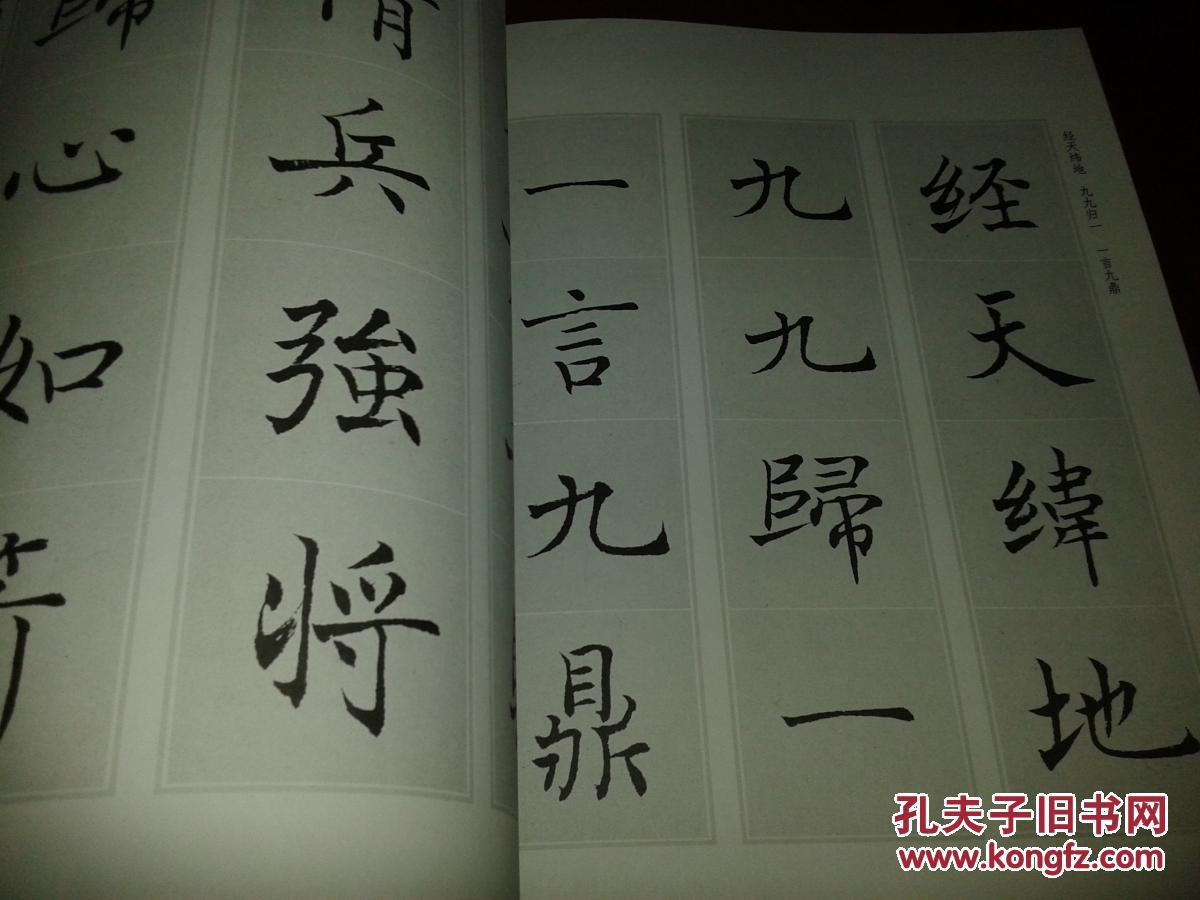 经天纬地 九九归一 一言九鼎
经天緯地
九九歸一
一言九鼎
兵強将
歸心如
孔夫子旧书网
www.kongfz.com